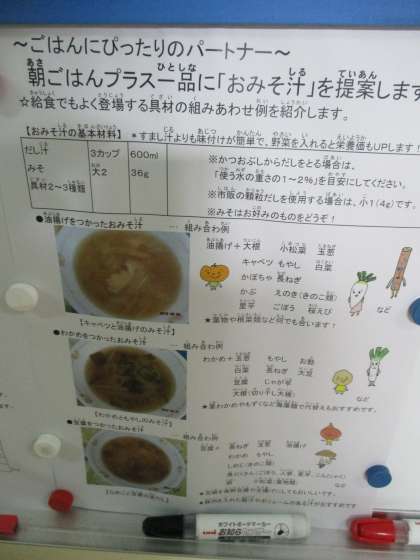 ～ごはんにぴったりのパートナー～
朝ごはんプラス一品に「おみそ汁」を提案します
☆給食でもよく登場する具材の組みあわせ例を紹介します。
【おみそ汁の基本材料】 *すまし汁よりも味付けが簡単で、野菜を入れると栄養価もUPします！
だし汁 3カップ 600ml
みそ 大2 36g
具材2～3種類
※かつおぶしからだしをとる場合は、
「使う水の重さの1～2%」を目安にしてください。
※市販の顆粒だしを使用する場合は、小1(4g)です。
※みそはお好みのものをどうぞ！
●油揚げをつかったおみそ汁 … 組み合わせ例
油揚げ＋大根 小松菜 玉葱
キャベツ もやし 白菜
かぼちゃ 長ねぎ
かぶ えのき(きのこ類)
里芋 ごぼう 桜えび など
★葉物や根菜類など何でも合います！
【キャベツと油揚げのみそ汁】
●わかめをつかったおみそ汁 … 組み合わせ例
わかめ＋玉葱 もやし お麩
白菜 長ねぎ 大豆
豆腐 じゃが芋
大根(切り干し大根) など
【わかめともやしのみそ汁】
●豆腐をつかったおみそ汁 … 組み合わせ例
豆腐＋ 長ねぎ 玉葱 油揚げ
わかめ もやし
など
ホワイトボードマーカー
uni お知らせ